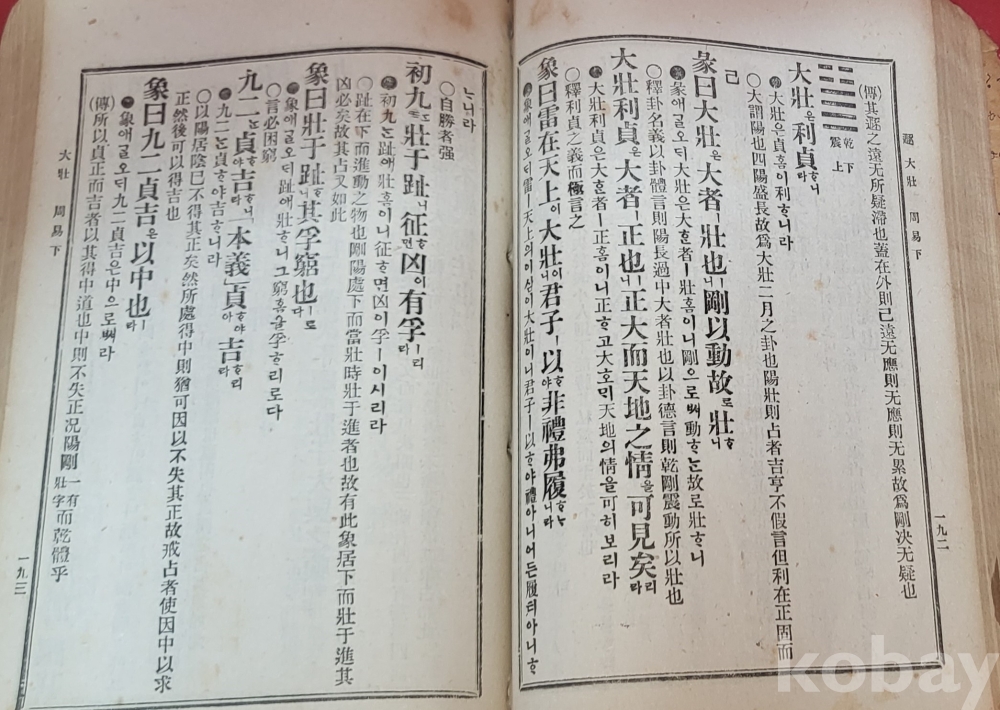 遯 大壯 周易下
一九二
(傳)其遯之遠无所疑滯也蓋在外則已遠无應則无累故爲剛决无疑也
乾下
震上
大壯은利貞ᄒᆞ니라
大壯은貞홈이利ᄒᆞ니라
○大謂陽也四陽盛長故爲大壯二月之卦也陽壯則占者吉亨不假言但利在正固而
己
彖曰大壯은大者ㅣ壯也ㅣ니剛以動故로壯ᄒᆞ니
彖애ᄀᆞᆯ오ᄃᆡ大壯은大ᄒᆞᆫ者ㅣ壯홈이니剛으로ᄡᅥ動ᄒᆞᄂᆞᆫ故로壯ᄒᆞ니
○釋卦名義以卦體言則陽長過中大者壯也以卦德言則乾剛震動所以壯也
大壯利貞은大者ㅣ正也ㅣ니正大而天地之情을可見矣리라
大壯利貞은大ᄒᆞᆫ者ㅣ正홈이니正ᄒᆞ고大ᄒᆞ며天地의情을可히보리라
○釋利貞之義而極言之
象曰雷在天上이大壯이니君子ㅣ以ᄒᆞ야非禮弗履ᄒᆞᄂᆞ니라
象애ᄀᆞᆯ오ᄃᆡ雷ㅣ天上의이심이大壯이니君子ㅣ以ᄒᆞ야禮아니어든履티아니ᄒᆞ
ᄂᆞ니라
○自勝者强
初九ᄂᆞᆫ壯于趾니征ᄒᆞ면凶이有孚ㅣ리라
初九ᄂᆞᆫ趾애壯홈이니征ᄒᆞ면凶이孚ㅣ이시리라
○趾在下而進動之物也剛陽處下而當壯時壯于進者也故有此象居下而壯于進其
凶必矣故其占又如此
象曰壯于趾ᄒᆞ니其孚窮也ㅣ로다
象애ᄀᆞᆯ오ᄃᆡ趾애壯ᄒᆞ니그窮홈을孚ᄒᆞ리로다
○言必困窮
九二ᄂᆞᆫ貞ᄒᆞ야吉ᄒᆞ니라 本義 貞ᄒᆞ야아吉ᄒᆞ리라
九二ᄂᆞᆫ貞ᄒᆞ야吉ᄒᆞ니라
○以陽居陰已不得其正矣然所處得中則猶可因以不失其正故戒占者使因中以求
正然後可以得吉也
象曰九二貞吉은以中也ㅣ라
象애ᄀᆞᆯ오ᄃᆡ九二貞吉은中으로ᄡᅥ라
(傳)所以貞正而吉者以其得中道也中則不失正况陽剛一有壯字而乾體乎
大壯 周易下
一九三
kobay